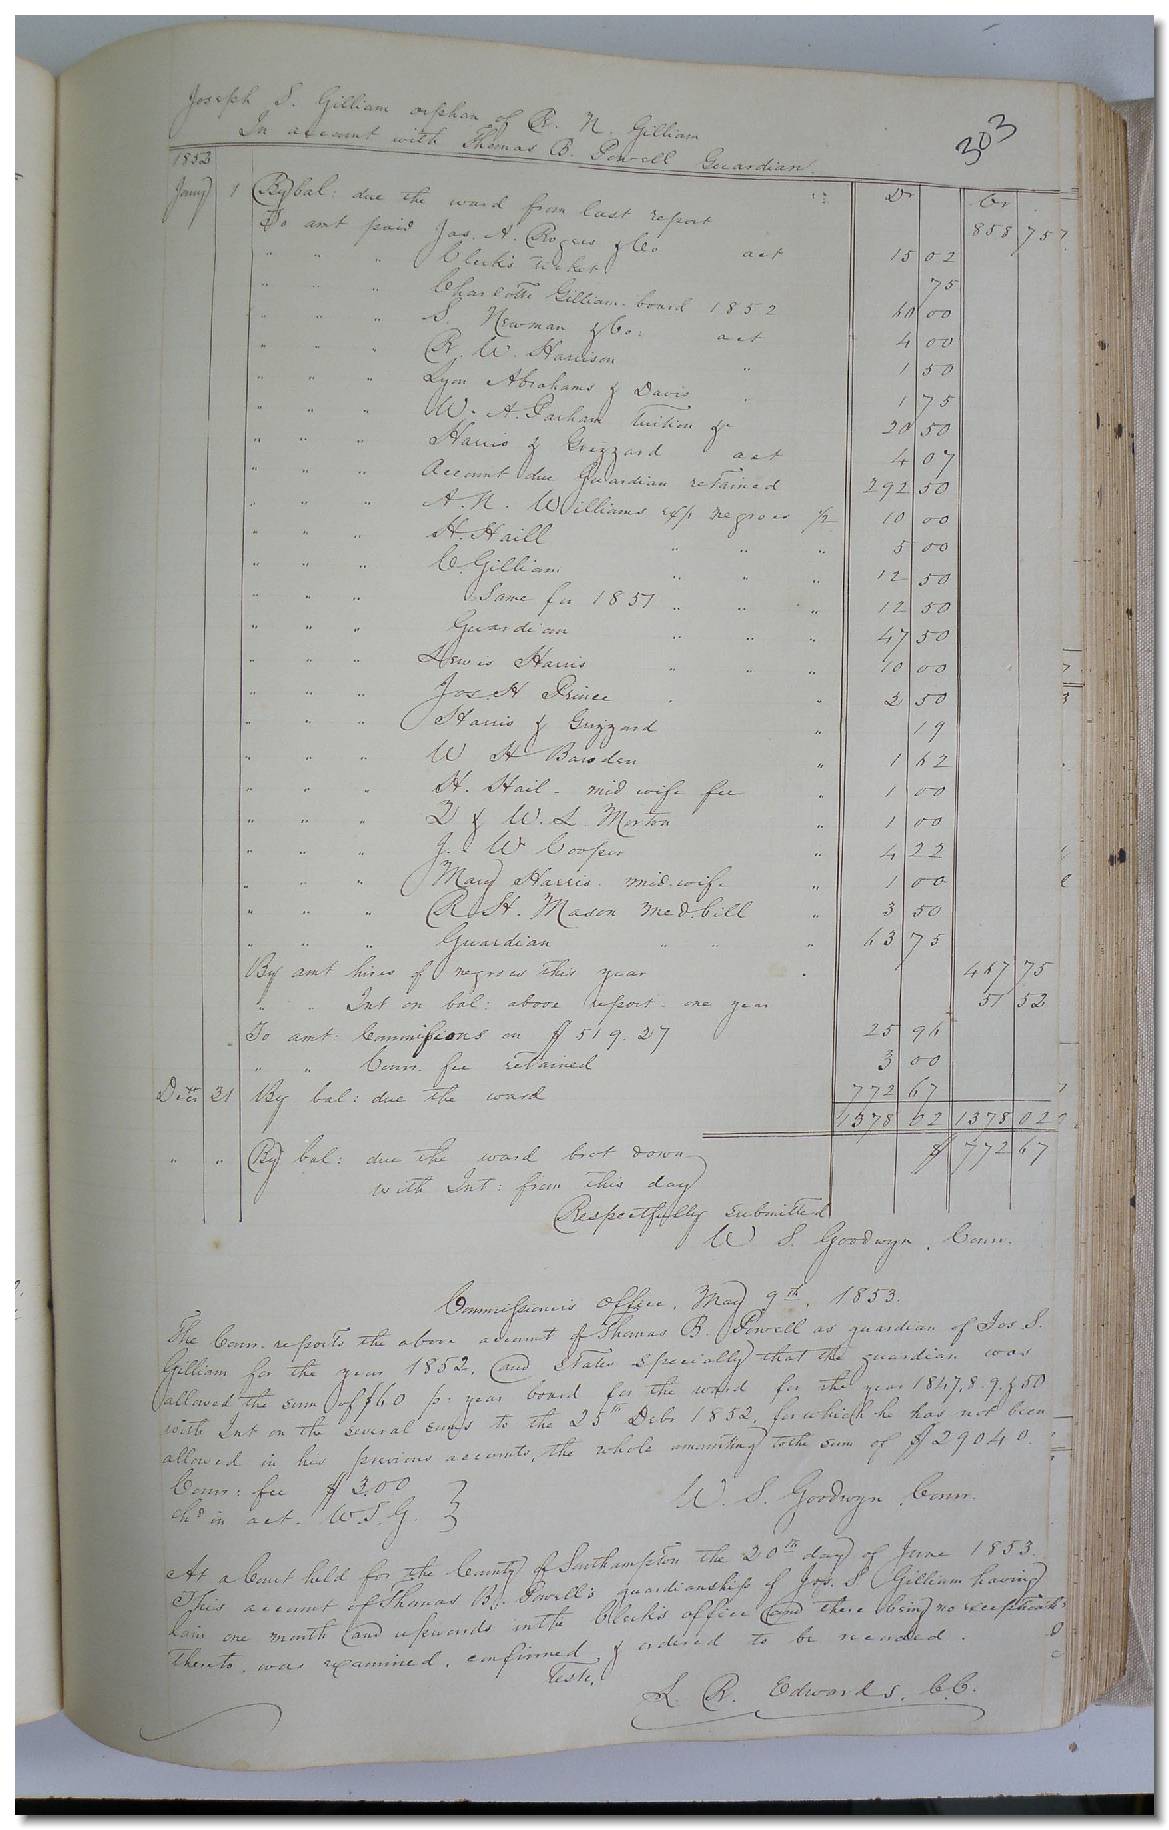 303
Joseph S. Gilliam orphan of R. N. Gilliam
In account with Thomas B. Powell Guardian.
1852 Dr Cr
Jany 1 By bal: due the ward from last report 858 75
To amt paid Jos. A. Rogers & Co act 15 02
" " " Clerk's ticket 75
" " " Charlotte Gilliam board 1852 60 00
" " " S. Newman & Co: act 4 00
" " " R. W. Harrison " 1 50
" " " Lyon Abrahams & Davis " 1 75
" " " W. A. Parham Tuition &c 20 50
" " " Harris & Grizzard act 4 07
" " " Account due Guardian retained 292 50
" " " A. N. Williams exp negroes 1/2 10 00
" " " H. Haill " " " 5 00
" " " C. Gilliam " " " 12 50
" " " Same for 1851 " " " 12 50
" " " Guardian " " " 47 50
" " " Lewis Harris " " " 10 00
" " " Jos. H Prince " " 2 50
" " " Harris & Grizzard " 19
" " " W H Barden " 1 62
" " " H. Hail - mid wife fee " 1 00
" " " & W. L. Morton " 1 00
" " " J. W Cooper " 4 22
" " " Mary Harris. mid.wife " 1 00
" " " R. H. Mason med. bill " 3 50
" " " Guardian " " " 63 75
By amt hires of negroes this year 467 75
" " Int on bal: above report - one year 51 52
To amt: Commissions on $519.27 25 96
" " Comr. fee retained 3 00
Decr 31 By bal: due the ward 772 67
1378 02 1378 02
" " By bal: due the ward brot down $ 772 67
with Int: from this day
Respectfully submitted
W S. Goodwyn, Comr.
Commissioner's Office, May 9th, 1853.
The Comr. reports the above account of Thomas B. Powell as guardian of Jos S.
Gilliam for the year 1852, and states specially that the guardian was
allowed the sum of $60 pr. year board for the ward for the year 1847, 8. 9. & 50
with Int on the several sums to the 25th Decbr 1852, for which he has not been
allowed in his previous accounts, the whole amounting to the sum of $290 40.
Comr: fee $3.00
chd in act. W.S.G.
W. S. Goodwyn Comr.
At a Court held for the County of Southampton the 20th day of June 1853.
This account of Thomas B. Powell's guardianship of Jos. S Gilliam having
lain one month and upwards in the Clerk's office and there being no exceptions
thereto, was examined, confirmed & ordered to be recorded.
Teste,
L. R. Edwards, C.C.